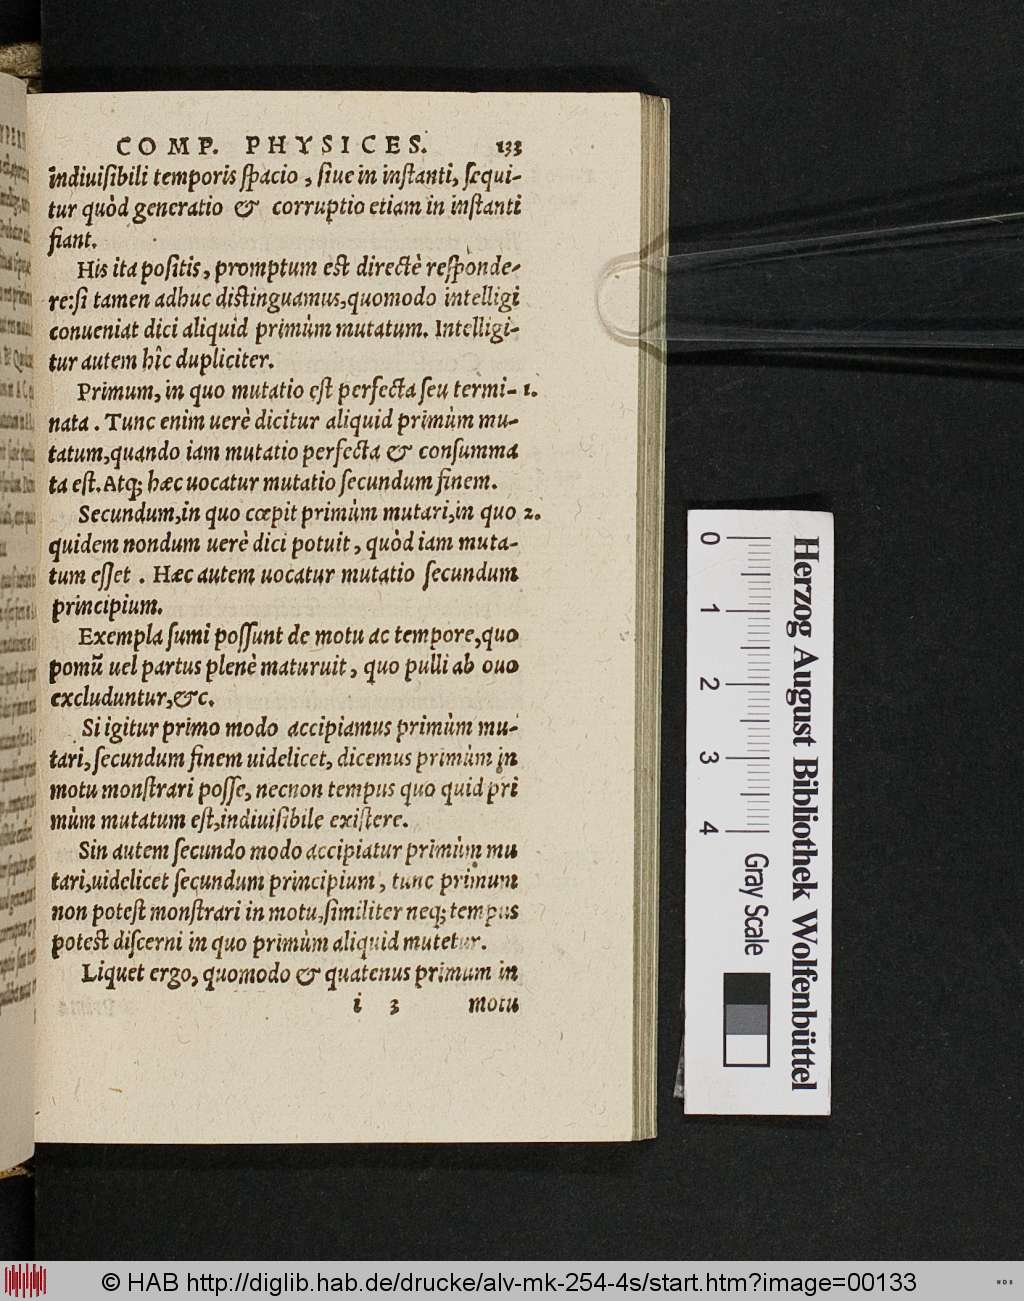 COMP. PHYSICES. 133
indiuiſibili temporis ſpacio, ſiue in inſtanti, ſequi-
tur quòd generatio & corruptio etiam in inſtanti
fiant.
His ita poſitis, promptum eſt directè reſponde-
re: ſi tamen adhuc diſtinguamus, quomodo intelligi
conueniat dici aliquid primùm mutatum. Intelligi-
tur autem hîc dupliciter.
Primum, in quo mutatio eſt perfecta ſeu termi- 1.
nata. Tunc enim uerè dicitur aliquid primùm mu-
tatum, quando iam mutatio perfecta & conſumma
ta eſt. Atq; hæc uocatur mutatio ſecundum finem.
Secundum, in quo cœpit primùm mutari, in quo 2.
quidem nondum uerè dici potuit, quòd iam muta-
tum eſſet. Hæc autem uocatur mutatio ſecundum
principium.
Exempla ſumi poſſunt de motu ac tempore, quo
pomũ uel partus plenè maturuit, quo pulli ab ouo
excluduntur, &c.
Si igitur primo modo accipiamus primùm mu-
tari, ſecundum finem uidelicet, dicemus primùm in
motu monſtrari poſſe, necnon tempus quo quid pri
mùm mutatum eſt, indiuiſibile exiſtere.
Sin autem ſecundo modo accipiatur primùm mu
tari, uidelicet ſecundum principium, tunc primum
non poteſt monſtrari in motu, ſimiliter neq; tempus
poteſt diſcerni in quo primùm aliquid mutetur.
Liquet ergo, quomodo & quatenus primum in
i 3 motu
Herzog August Bibliothek Wolfenbüttel
0 1 2 3 4 Gray Scale
© HAB http://diglib.hab.de/drucke/alv-mk-254-4s/start.htm?image=00133